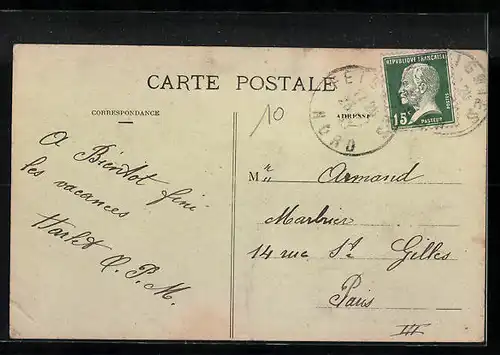 CARTE POSTALE
CORRESPONDANCE
ADRESSE
10
REPUBLIQUE FRANÇAISE
15c
POSTES
PASTEUR
NORD
A Bientot fini
les vacances
Harlet Q.P.M.
Mr Armand
Marbrier
14 rue St Gilles
Paris
III